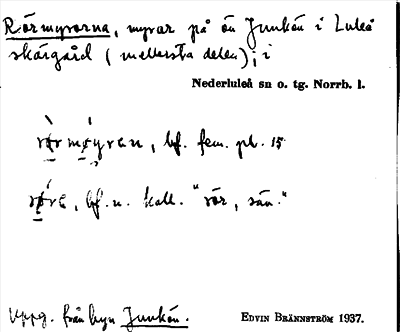 Rörmyrorna, myrar på ön Junkön i Luleå
skärgård (mellersta delen); i
Nederluleå sn o. tg. Norrb. l.
bf. fem. pl. 15
bf. n. koll. "rör, sän."
Uppg. från byn Junkön.
EDVIN BRÄNNSTRÖM 1937.